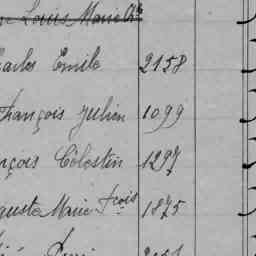 Louis Marie
Charles Emile 2158
François Julien 1099
nçois Célestin 1297
guste Marie fçois 1875